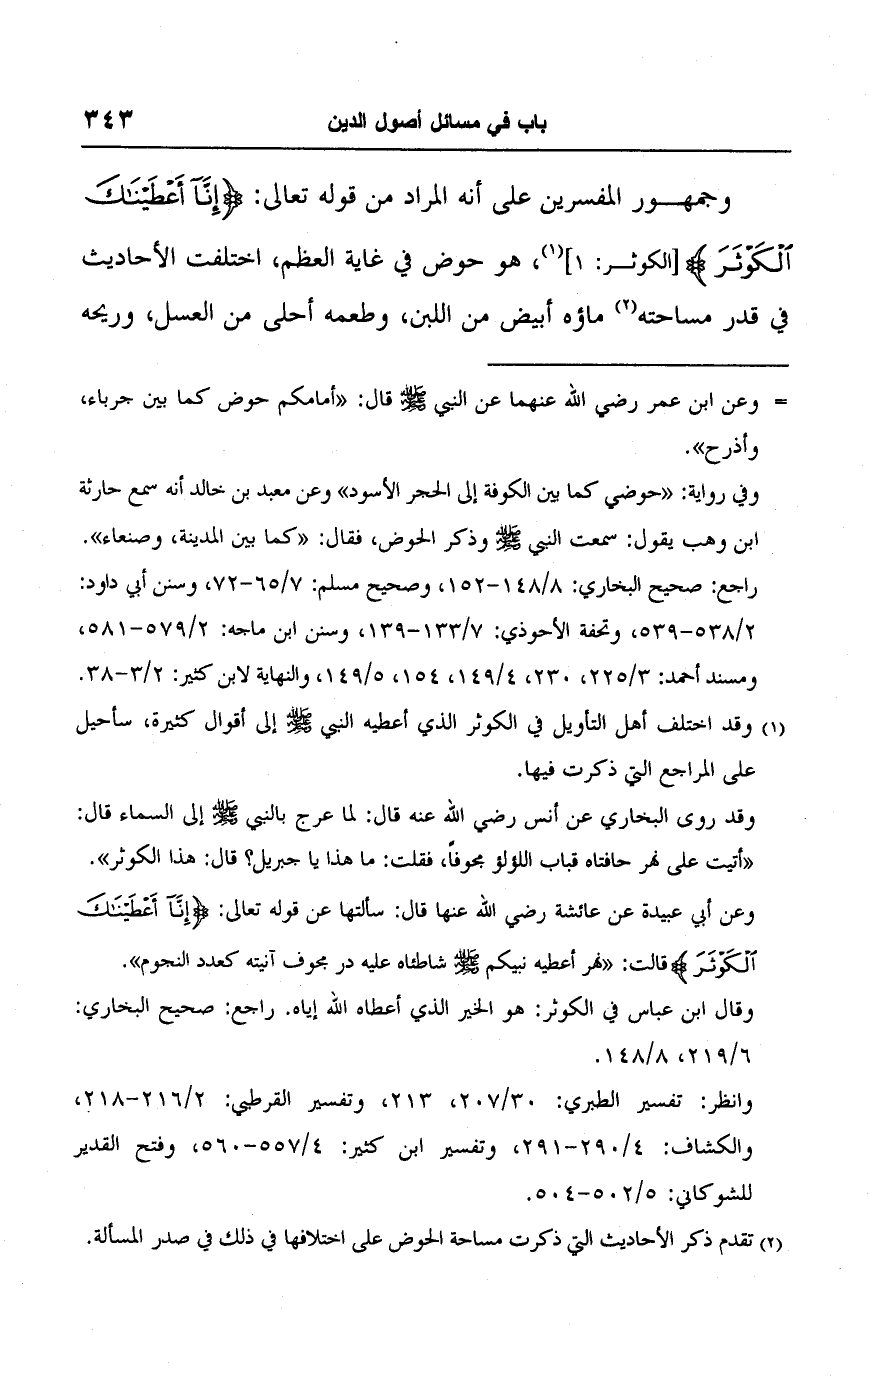 باب في مسائل أصول الدين ٣٤٣
وجمهـــور المفسرين على أنه المراد من قوله تعالى: ﴿إِنَّآ أَعْطَيْنَٰكَ
ٱلْكَوْثَرَ﴾ [الكوثـــر: ١](١)، هو حوض في غاية العظم، اختلفت الأحاديث
في قدر مساحته(٢) ماؤه أبيض من اللبن، وطعمه أحلى من العسل، وريحه
= وعن ابن عمر رضي الله عنهما عن النبي ﷺ قال: «أمامكم حوض كما بين جرباء،
وأذرح».
وفي رواية: «حوضي كما بين الكوفة إلى الحجر الأسود» وعن معبد بن خالد أنه سمع حارثة
ابن وهب يقول: سمعت النبي ﷺ وذكر الحوض، فقال: «كما بين المدينة، وصنعاء».
راجع: صحيح البخاري: ١٤٨/٨-١٥٢، وصحيح مسلم: ٦٥/٧-٧٢، وسنن أبي داود:
٥٣٨/٢-٥٣٩، وتحفة الأحوذي: ١٣٣/٧-١٣٩، وسنن ابن ماجه: ٥٧٩/٢-٥٨١،
ومسند أحمد: ٢٢٥/٣، ٢٣٠، ١٤٩/٤، ١٥٤، ١٤٩/٥، والنهاية لابن كثير: ٣/٢-٣٨.
(١) وقد اختلف أهل التأويل في الكوثر الذي أعطيه النبي ﷺ إلى أقوال كثيرة، سأحيل
على المراجع التي ذكرت فيها.
وقد روى البخاري عن أنس رضي الله عنه قال: لما عرج بالنبي ﷺ إلى السماء قال:
«أتيت على نهر حافتاه قباب اللؤلؤ مجوفاً، فقلت: ما هذا يا جبريل؟ قال: هذا الكوثر».
وعن أبي عبيدة عن عائشة رضي الله عنها قال: سألتها عن قوله تعالى: ﴿إِنَّآ أَعْطَيْنَٰكَ
ٱلْكَوْثَرَ﴾ قالت: «نهر أعطيه نبيكم ﷺ شاطئاه عليه در مجوف آنيته كعدد النجوم».
وقال ابن عباس في الكوثر: هو الخير الذي أعطاه الله إياه. راجع: صحيح البخاري:
٢١٩/٦، ١٤٨/٨.
وانظر: تفسير الطبري: ٢٠٧/٣٠، ٢١٣، وتفسير القرطبي: ٢١٦/٢-٢١٨،
والكشاف: ٢٩٠/٤-٢٩١، وتفسير ابن كثير: ٥٥٧/٤-٥٦٠، وفتح القدير
للشوكاني: ٥٠٢/٥-٥٠٤.
(٢) تقدم ذكر الأحاديث التي ذكرت مساحة الحوض على اختلافها في ذلك في صدر المسألة.